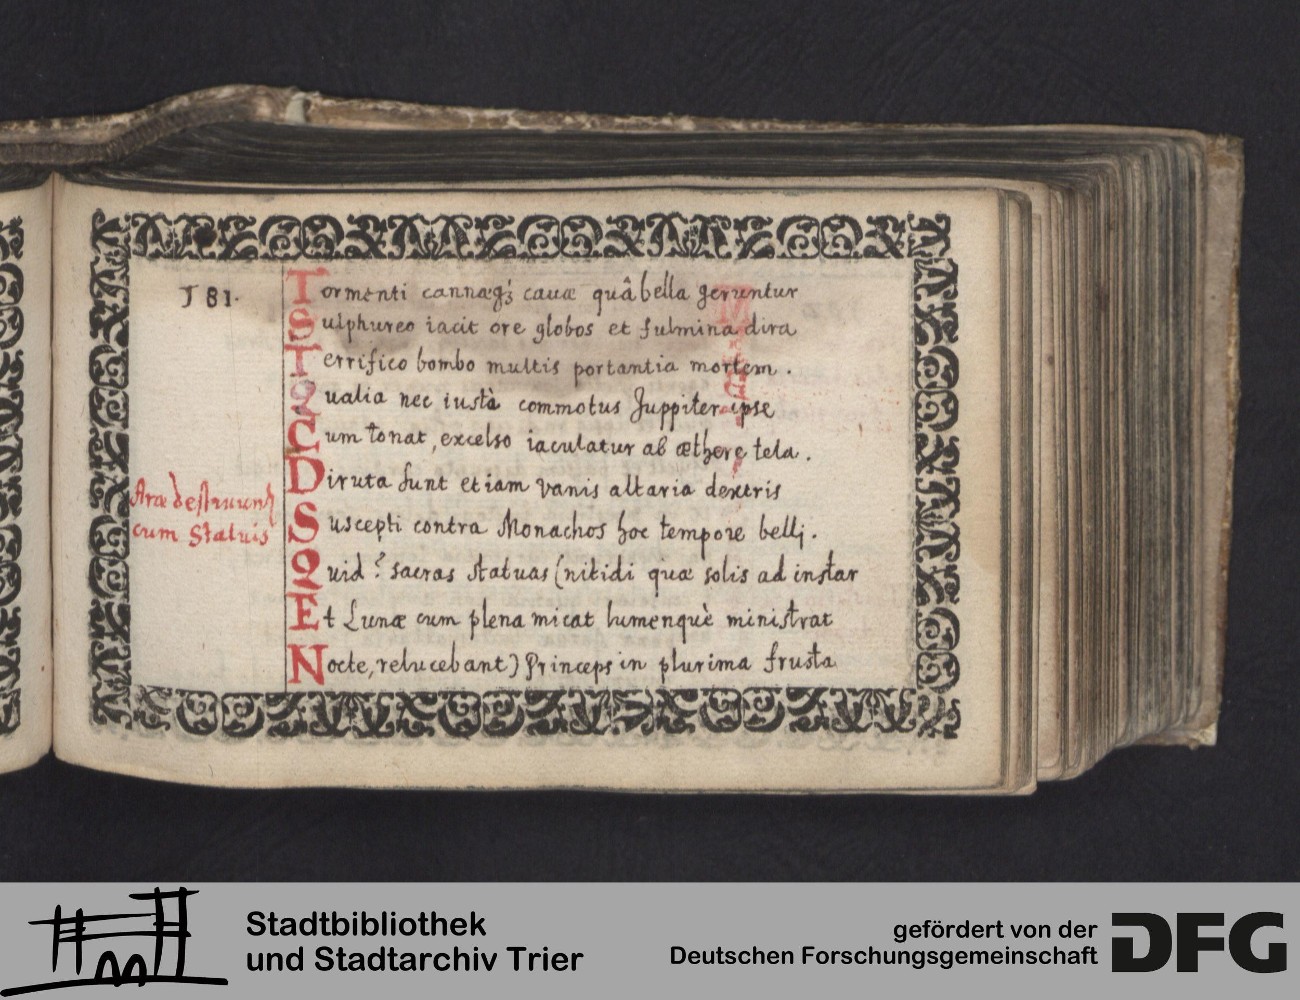 181.
Tormenti cannæq́; cauæ quâ bella geruntur
Sulphureo iacit ore globos et fulmina dira
Terrifico bombo multis portantia mortem.
Qualia nec iustà commotus Juppiter ipse
Cum tonat, excelso iaculatur ab æthere tela.
Diruta sunt etiam vanis altaria dextris
Suscepti contra Monachos hoc tempore bellj.
Quid? sacras statuas (nitidi quæ solis ad instar
Et Lunæ cum plena micat lumenquè ministrat
Nocte, relucebant) Princeps in plurima frusta
Aræ destruunt
cum Statuis
Stadtbibliothek
und Stadtarchiv Trier
gefördert von der
Deutschen Forschungsgemeinschaft
DFG